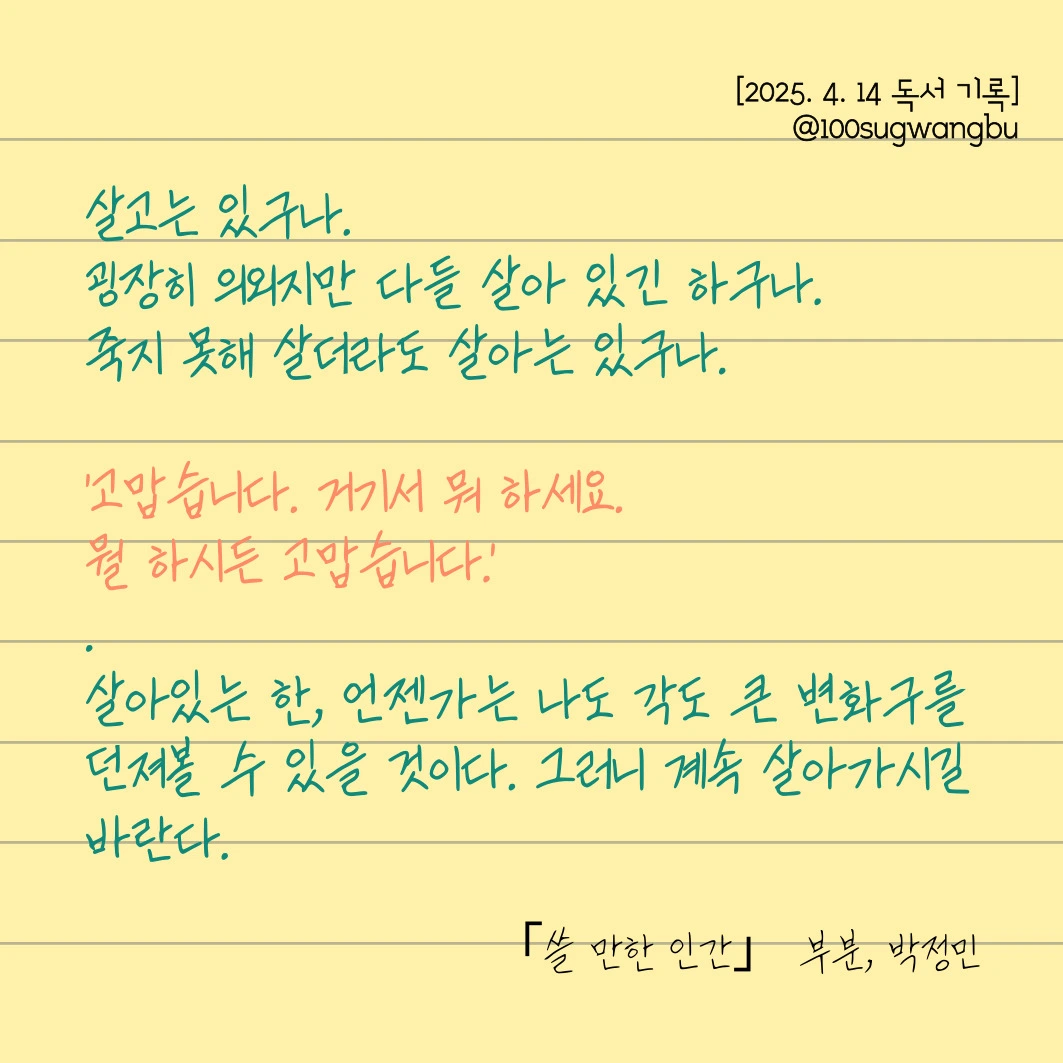 [2025. 4. 14 독서 기록]
@100sugwangbu
살고는 있구나.
굉장히 의외지만 다들 살아 있긴 하구나.
죽지 못해 살더라도 살아는 있구나.
'고맙습니다. 거기서 뭐 하세요.
뭘 하시든 고맙습니다.'
.
살아있는 한, 언젠가는 나도 각도 큰 변화구를
던져볼 수 있을 것이다. 그러니 계속 살아가시길
바란다.
「쓸 만한 인간」 부분, 박정민